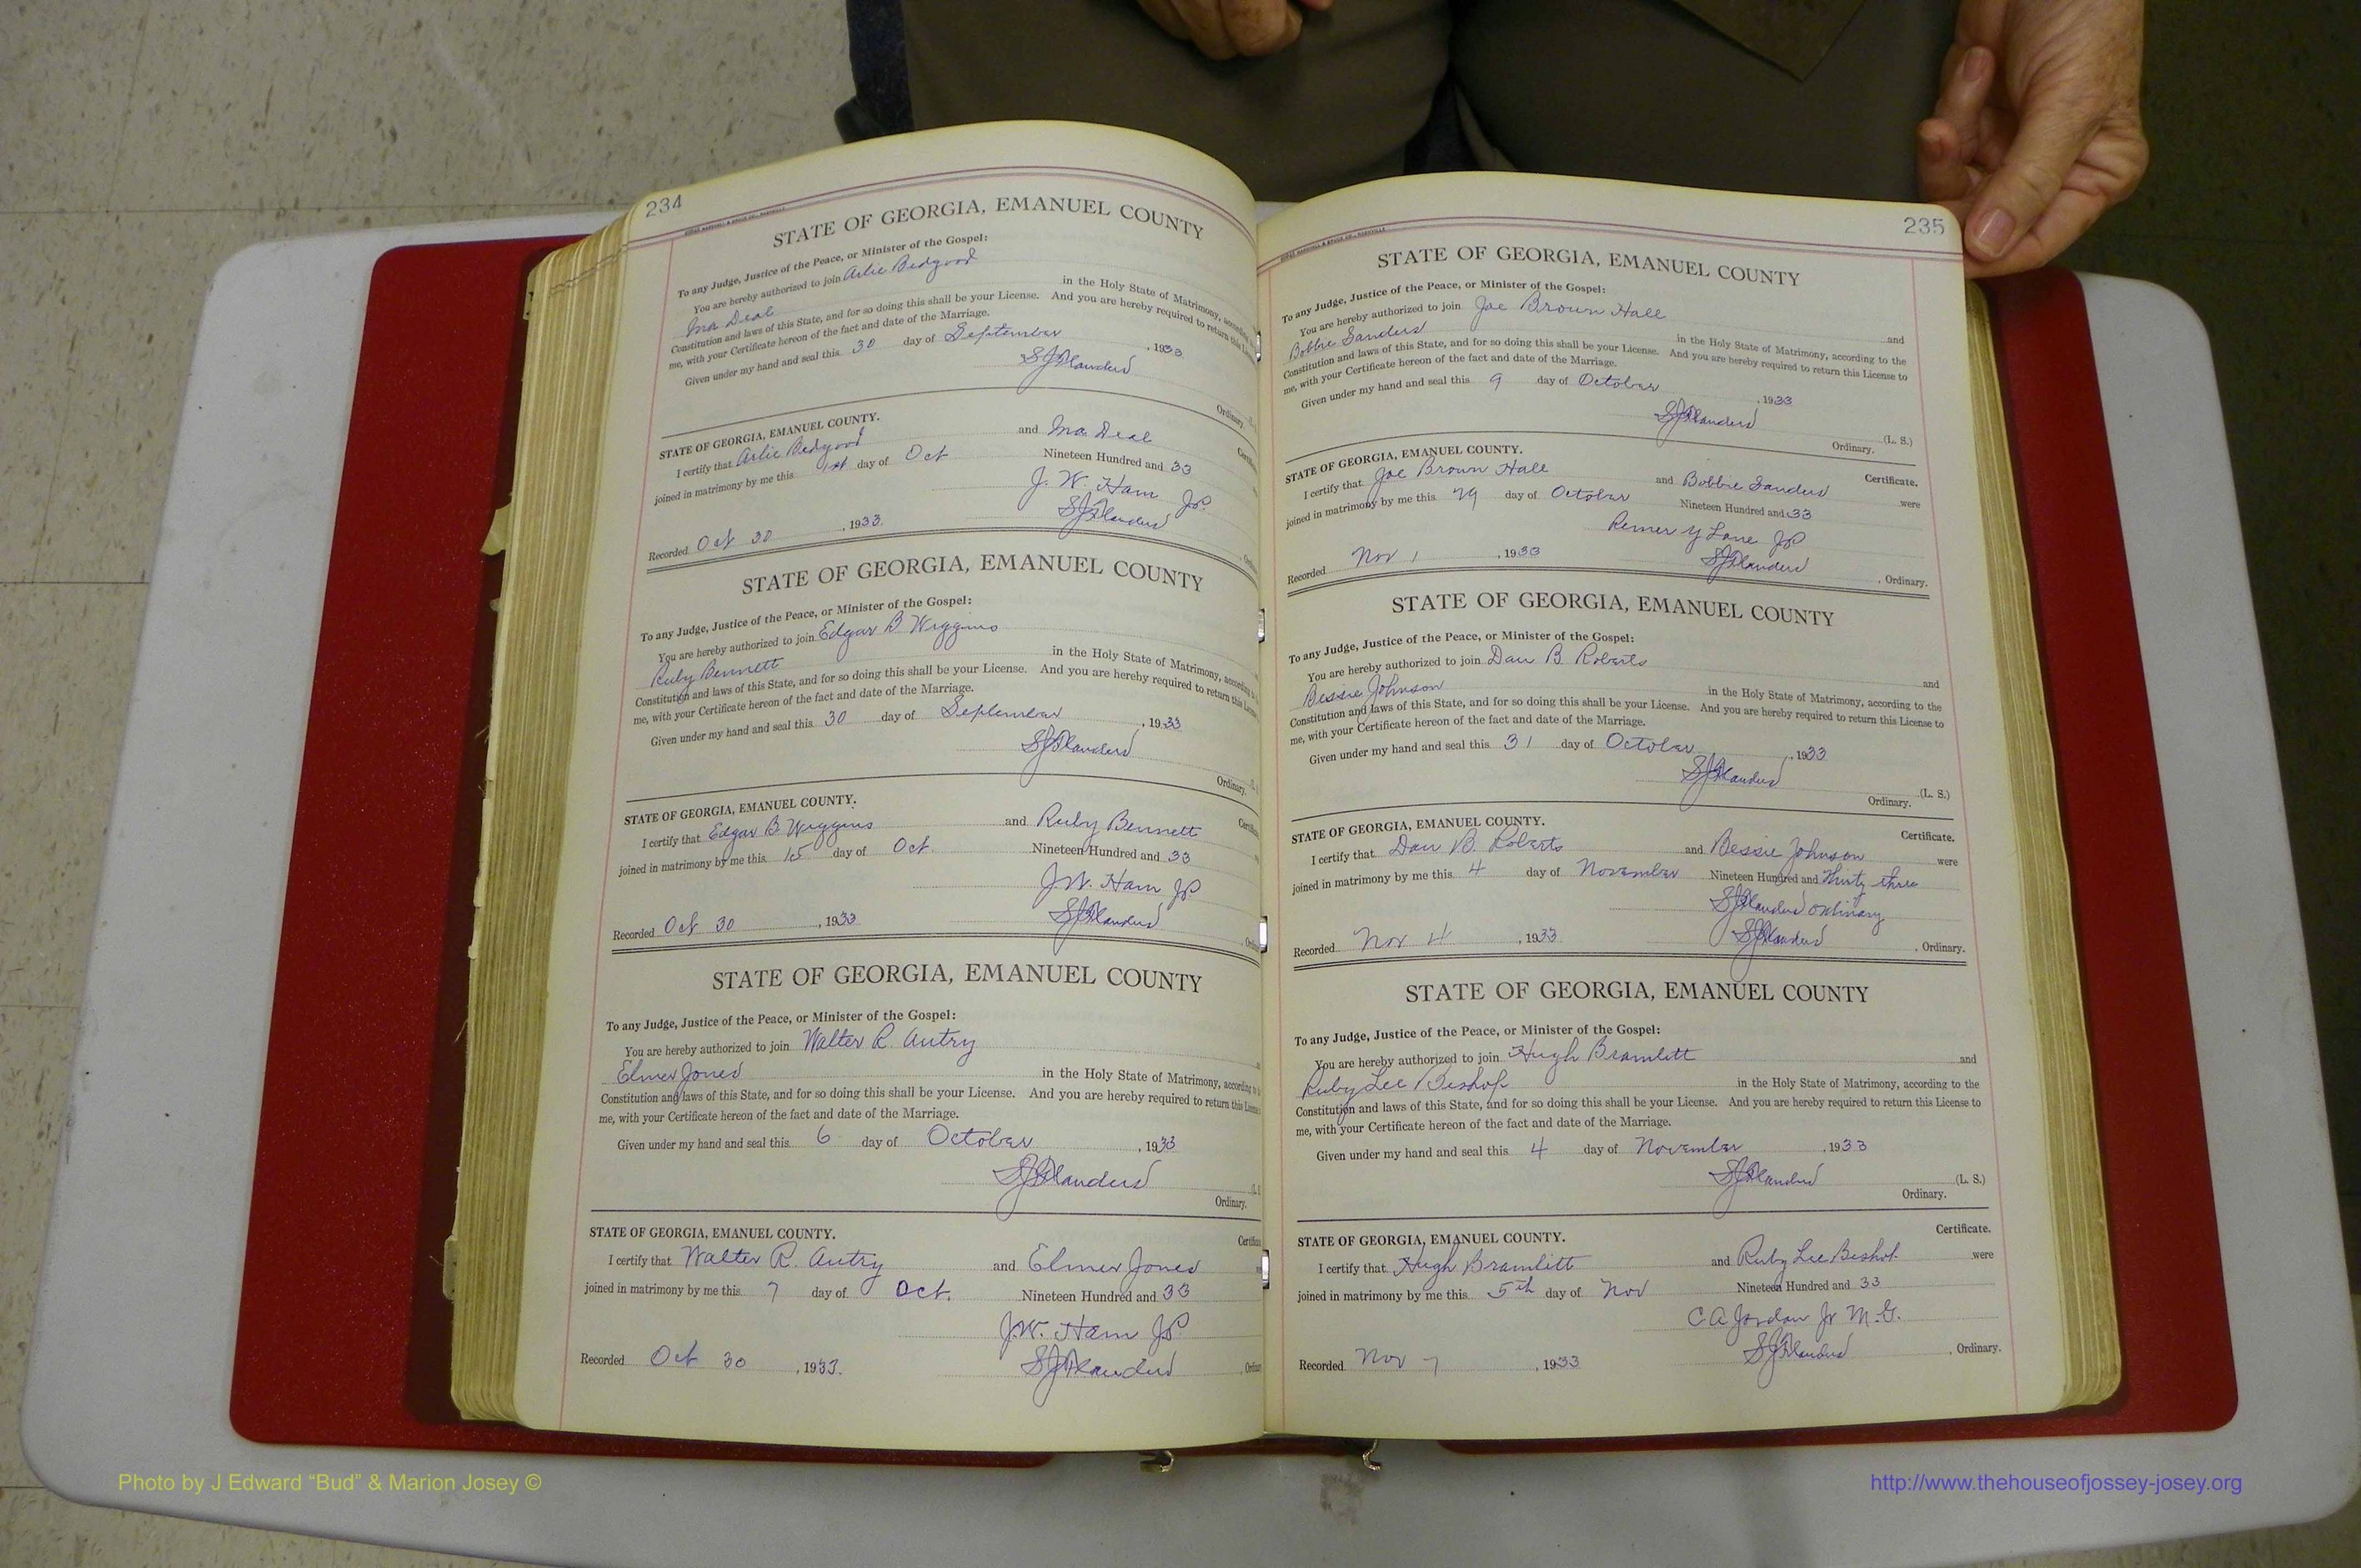 234
STATE OF GEORGIA, EMANUEL COUNTY
To any Judge, Justice of the Peace, or Minister of the Gospel:
You are hereby authorized to join Arlie Bedgood
Ina Deal in the Holy State of Matrimony, according
Constitution and laws of this State, and for so doing this shall be your License. And you are hereby required to return this
me, with your Certificate hereon of the fact and date of the Marriage.
Given under my hand and seal this 30 day of September, 1933
S J Flanders
Ordinary.
STATE OF GEORGIA, EMANUEL COUNTY.
I certify that Arlie Bedgood and Ina Deal
joined in matrimony by me this 1st day of Oct Nineteen Hundred and 33
J. W. Ham JP.
Recorded Oct 30, 1933. S J Flanders
STATE OF GEORGIA, EMANUEL COUNTY
To any Judge, Justice of the Peace, or Minister of the Gospel:
You are hereby authorized to join Edgar B Wiggins
Ruby Bennett in the Holy State of Matrimony, according
Constitution and laws of this State, and for so doing this shall be your License. And you are hereby required to return this
me, with your Certificate hereon of the fact and date of the Marriage.
Given under my hand and seal this 30 day of September, 1933
S J Flanders
Ordinary.
STATE OF GEORGIA, EMANUEL COUNTY.
I certify that Edgar B. Wiggins and Ruby Bennett
joined in matrimony by me this 15 day of Oct. Nineteen Hundred and 33
J.W. Ham JP
Recorded Oct 30, 1933. S J Flanders
STATE OF GEORGIA, EMANUEL COUNTY
To any Judge, Justice of the Peace, or Minister of the Gospel:
You are hereby authorized to join Walter R. Autry
Elmer Jones in the Holy State of Matrimony, according
Constitution and laws of this State, and for so doing this shall be your License. And you are hereby required to return this
me, with your Certificate hereon of the fact and date of the Marriage.
Given under my hand and seal this 6 day of October, 1933
S J Flanders
Ordinary.
STATE OF GEORGIA, EMANUEL COUNTY.
I certify that Walter R. Autry and Elmer Jones
joined in matrimony by me this 7 day of Oct. Nineteen Hundred and 33
J.W. Ham JP
Recorded Oct 30, 1933. S J Flanders
235
STATE OF GEORGIA, EMANUEL COUNTY
To any Judge, Justice of the Peace, or Minister of the Gospel:
You are hereby authorized to join Joe Brown Hall and
Bobbie Sanders in the Holy State of Matrimony, according to the
Constitution and laws of this State, and for so doing this shall be your License. And you are hereby required to return this License to
me, with your Certificate hereon of the fact and date of the Marriage.
Given under my hand and seal this 9 day of October, 1933
S J Flanders (L. S.)
Ordinary.
STATE OF GEORGIA, EMANUEL COUNTY. Certificate.
I certify that Joe Brown Hall and Bobbie Sanders were
joined in matrimony by me this 29 day of October Nineteen Hundred and 33
Remer Y Lane JP
Recorded Nov 1, 1933 S J Flanders, Ordinary.
STATE OF GEORGIA, EMANUEL COUNTY
To any Judge, Justice of the Peace, or Minister of the Gospel:
You are hereby authorized to join Dan B Roberts and
Bessie Johnson in the Holy State of Matrimony, according to the
Constitution and laws of this State, and for so doing this shall be your License. And you are hereby required to return this License to
me, with your Certificate hereon of the fact and date of the Marriage.
Given under my hand and seal this 31 day of October, 1933
S J Flanders (L. S.)
Ordinary.
STATE OF GEORGIA, EMANUEL COUNTY. Certificate.
I certify that Dan B. Roberts and Bessie Johnson were
joined in matrimony by me this 4 day of November Nineteen Hundred and Thirty three
S J Flanders Ordinary
Recorded Nov 4, 1933 S J Flanders, Ordinary.
STATE OF GEORGIA, EMANUEL COUNTY
To any Judge, Justice of the Peace, or Minister of the Gospel:
You are hereby authorized to join Hugh Bramlitt and
Ruby Lee Bishop in the Holy State of Matrimony, according to the
Constitution and laws of this State, and for so doing this shall be your License. And you are hereby required to return this License to
me, with your Certificate hereon of the fact and date of the Marriage.
Given under my hand and seal this 4 day of November, 1933
S J Flanders (L. S.)
Ordinary.
STATE OF GEORGIA, EMANUEL COUNTY. Certificate.
I certify that Hugh Bramlitt and Ruby Lee Bishop were
joined in matrimony by me this 5th day of Nov Nineteen Hundred and 33
C A Jordan Jr M.G.
Recorded Nov 7, 1933 S J Flanders, Ordinary.
Photo by J Edward “Bud” & Marion Josey ©
http://www.thehouseofjossey-josey.org